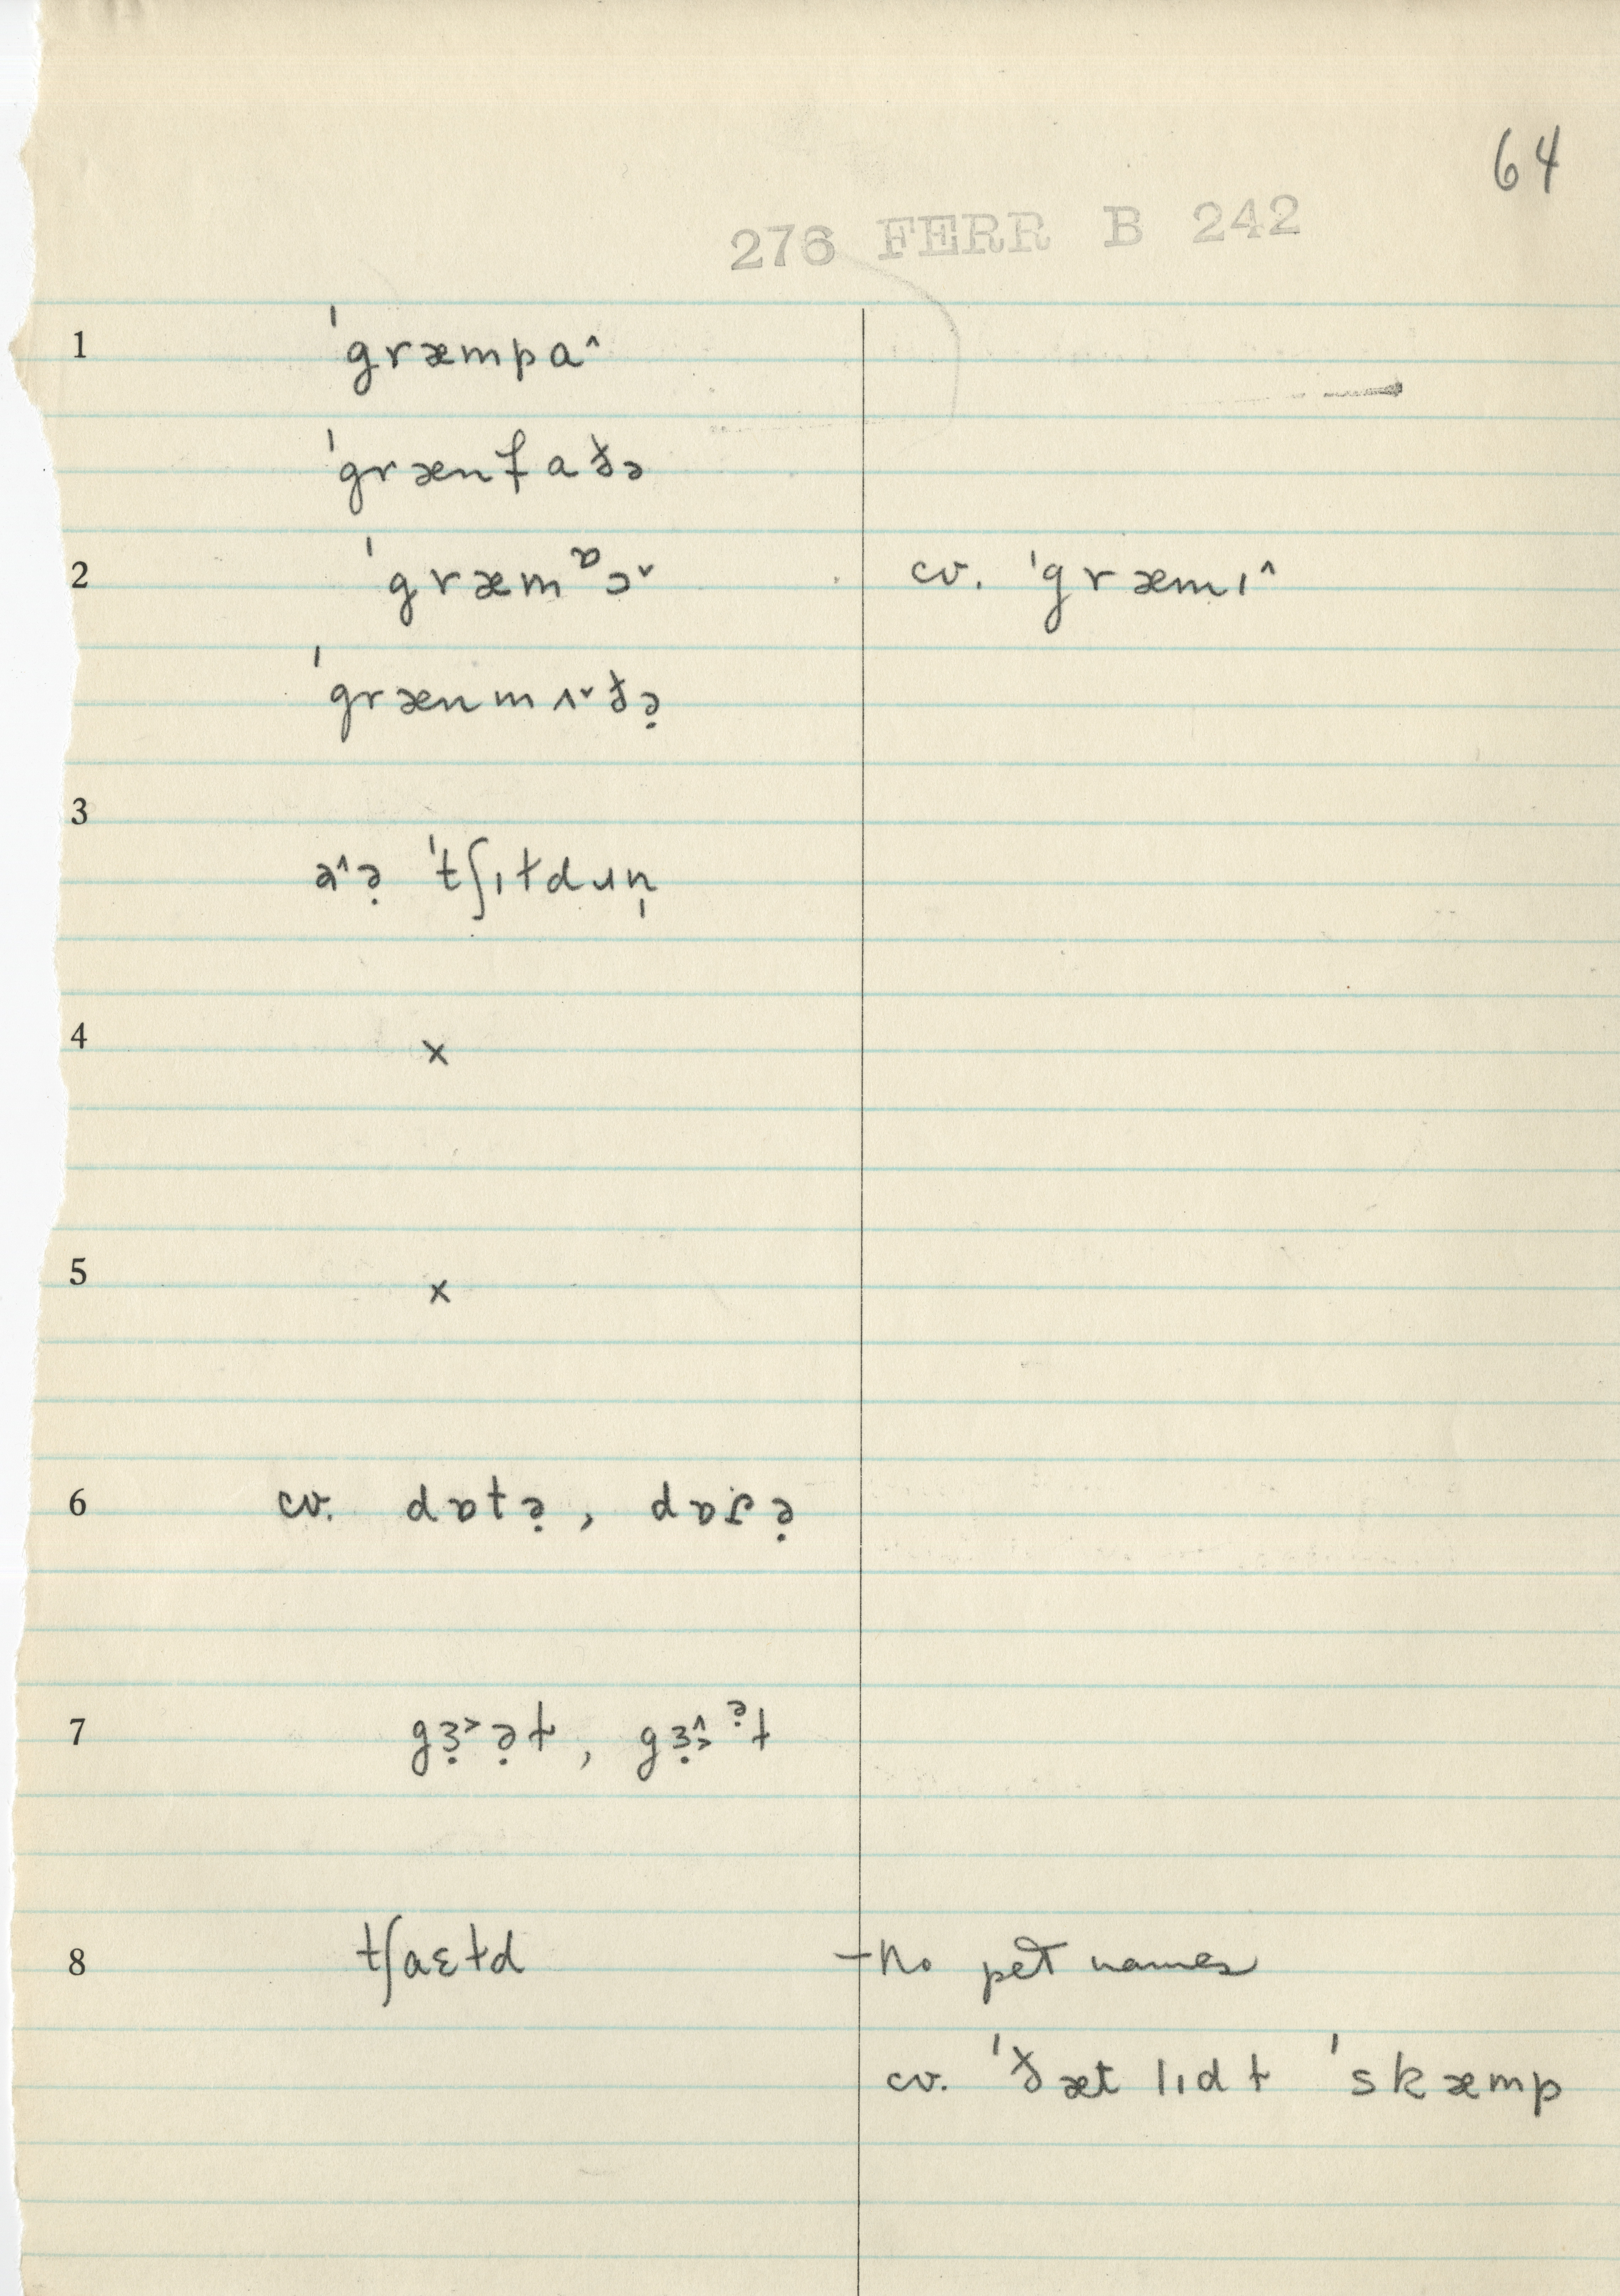 64
276 FERR B 242
1 ˈgræmpa˄
ˈgrænfaðə
2 ˈgræmᶛɔ˅ cv. ˈgræmɪ˄
ˈgrænmʌ˅ðə̣
3
ə˄ə̣ ˈtʃɪɫdɹn̩
4 ×
5 ×
6 cv. dɒtə̣, dɒɾə̣
7 gɜ̣˃ə̣ɫ, gɜ̣˄˃ᵊ̣ɫ
8 tʃaɛɫd - No pet names
cv. ˈðæt lɪdɫ ˈskæmp